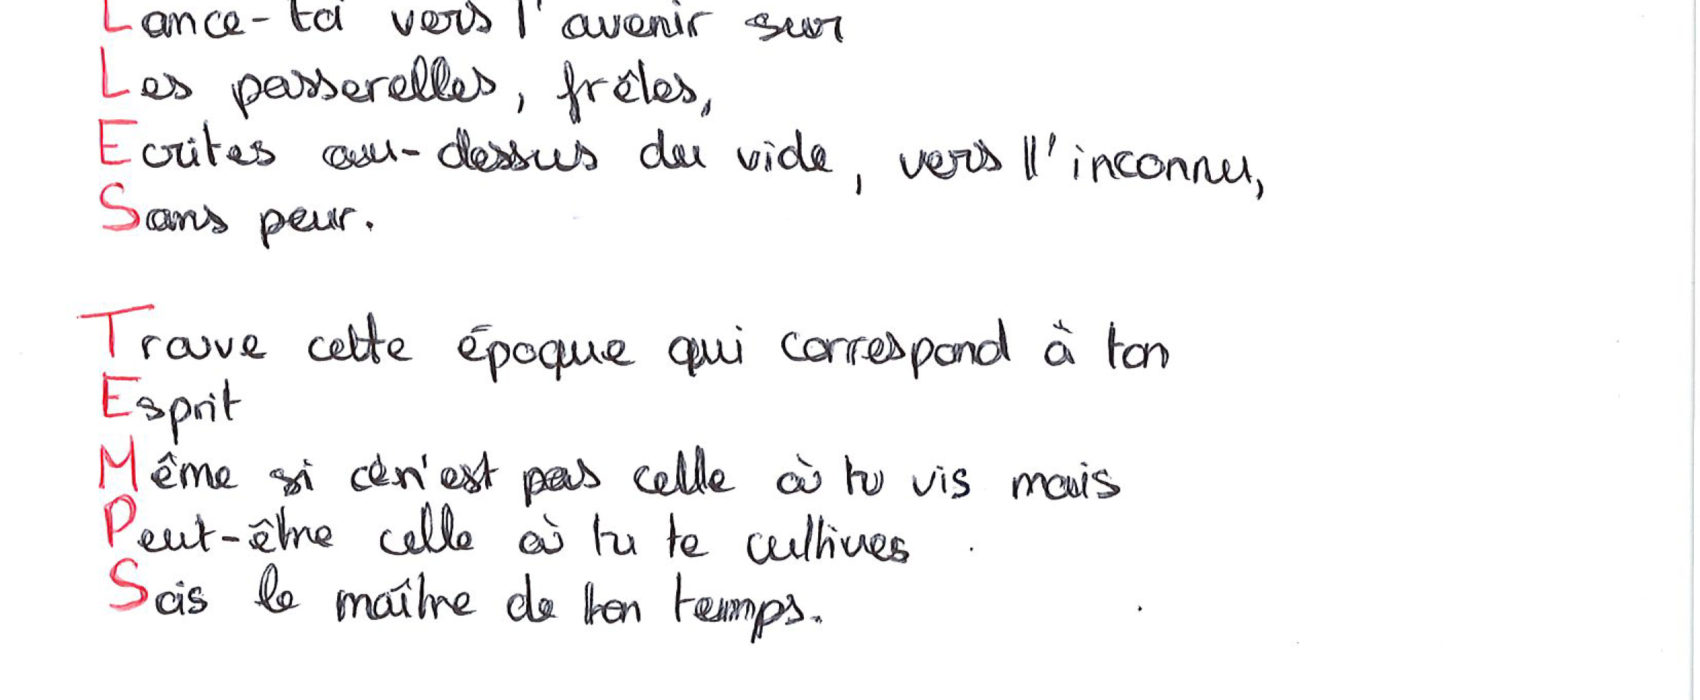 Lance-toi vers l'avenir sur
Les passerelles, frêles,
Ecrites au-dessus du vide, vers l'inconnu,
Sans peur.
Trouve cette époque qui correspond à ton
Esprit
Même si ce n'est pas celle où tu vis mais
Peut-être celle où tu te cultives
Sois le maître de ton temps.